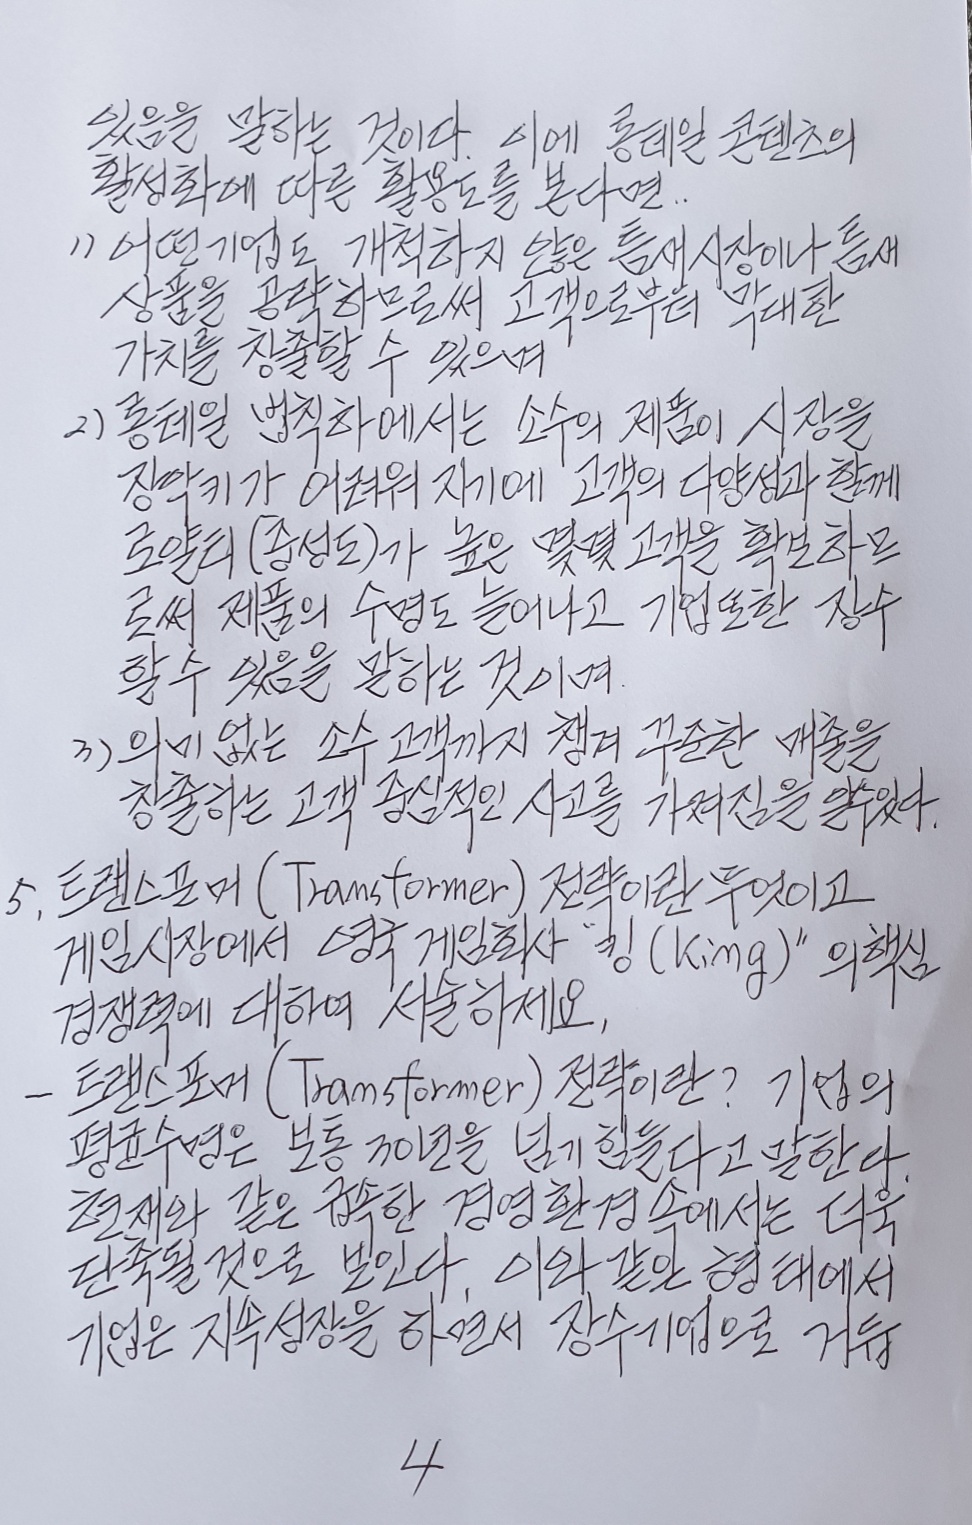 있음을 말하는 것이다. 이에 롱테일 콘텐츠의
활성화에 따른 활용도를 본다면..
1) 어떤기업도 개척하지 않은 틈새시장이나 틈새
상품을 공략하므로써 고객으로부터 막대한
가치를 창출할 수 있으며
2) 롱테일 법칙하에서는 소수의 제품이 시장을
장악키가 어려워 지기에 고객의 다양성과 함께
로얄티(충성도)가 높은 몇몇 고객을 확보하므
로써 제품의 수명도 늘어나고 기업또한 장수
할 수 있음을 말하는 것이며.
3) 의미 없는 소수 고객까지 챙겨 꾸준한 매출을
창출하는 고객 중심적인 사고를 가져짐을 알수있다.
5. 트랜스포머 (Transformer) 전략이란 무엇이고
게임시장에서 영국 게임회사 "킹(King)" 의 핵심
경쟁력에 대하여 서술하세요.
- 트랜스포머 (Transformer) 전략이란? 기업의
평균수명은 보통 30년을 넘기 힘들다고 말한다.
현재와 같은 급속한 경영환경속에서는 더욱
단축될것으로 보인다. 이와 같은 형태에서
기업은 지속성장을 하면서 장수기업으로 거듭
4